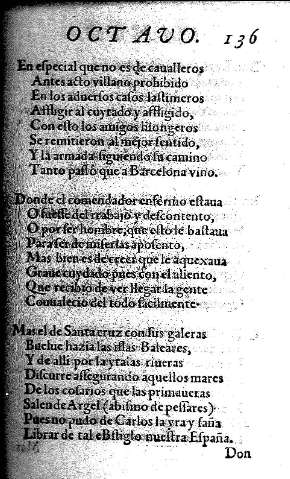 OCTAVO. 136
En especial que no es de caualleros
Antes acto villano prohibido
En los aduersos casos lastimeros
Affligir al cuytado y affligido,
Con esto los amigos lisongeros
Se remitieron al mejor sentido,
Y la armada siguiendo su camino
Tanto passò que a Barcelona vino.
Donde el comendador enfermo estaua
O fuesse del trabajo y descontento,
O por ser hombre, que esto le bastaua
Para ser de miserias aposento,
Mas bien es de creer que le aquexaua
Graue cuydado pues con el aliento,
Que recibio de ver llegar la gente
Conualecio del todo facilmente.
Mas el de Santa cruz con sus galeras
Buelue hazia las islas Baleares,
Y de alli por la ytaias riueras
Discurre assegurando aquellos mares
De los cosarios que las primaueras
Salen de Argel (abismo de pessares)
Pues no pudo de Carlos la yra y saña
Librar de tal nuestra España.
Don